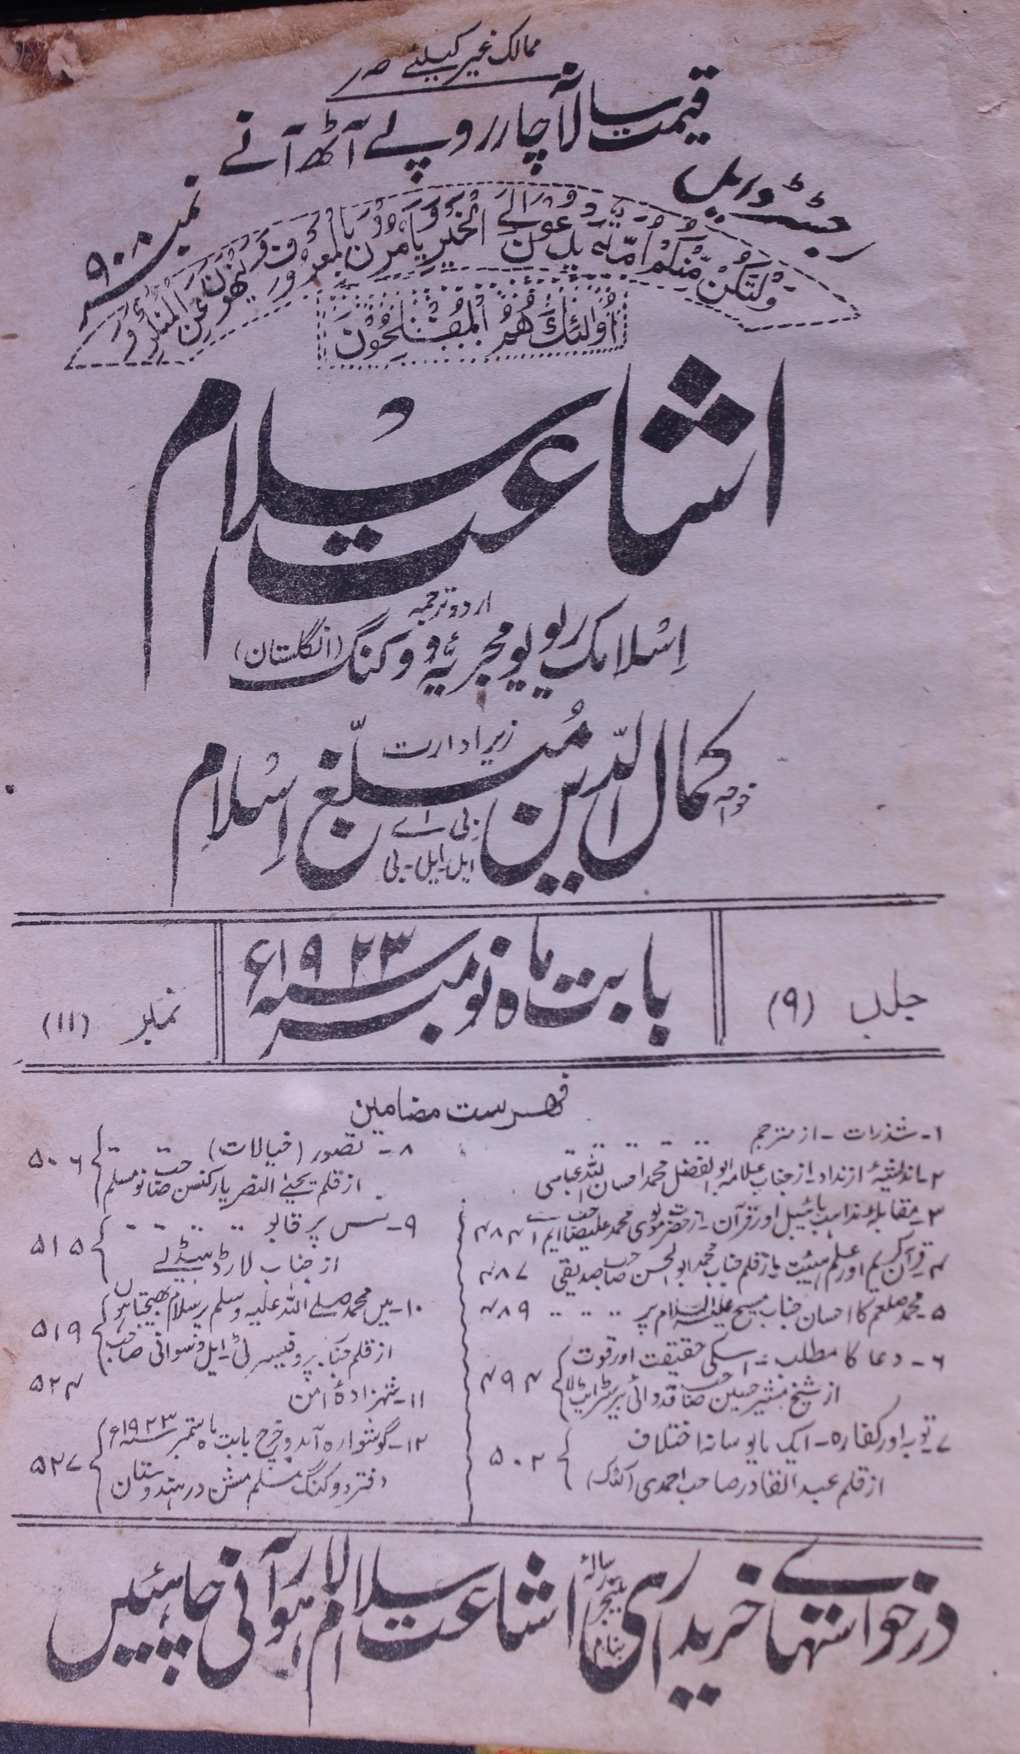 ممالک غیر کیلئے صہ
قیمت سالانہ چار روپے آٹھ آنے
رجسٹرڈ ایل نمبر ۹۰۸
وَلْتَكُنْ مِّنْكُمْ اُمَّةٌ يَّدْعُوْنَ اِلَى الْخَيْرِ وَيَاْمُرُوْنَ بِالْمَعْرُوْفِ وَيَنْهَوْنَ عَنِ الْمُنْكَرِ وَ
اُولٰئِكَ هُمُ الْمُفْلِحُوْنَ
اشاعت اسلام
اردو ترجمہ
اسلامک ریویو مجریہٴ ووکنگ (انگلستان)
زیر ادارت
خواجہ کمال الدین بی۔اے ایل۔ایل۔بی مبلّغ اسلام
جلد (۹)
بابت ماہ نومبر سنہ ۱۹۲۳ء
نمبر (۱۱)
فہرست مضامین
۱۔ شذرات ۔ از مترجم
۲۔ اندفعیہٴ ارتداد۔ از جناب علامہ ابوالفضل محمد احسان اللہ عباسی
۳۔ مقابلہ مذاہب بائیبل اور قرآن ۔ از حضرت مولوی محمد علی صاحب ایم اے ۴۸۴
۴۔ قرآن کریم اور علم ہیئت ۔ از قلم جناب محمد ابوالحسن صاحب صدیقی ۴۸۷
۵۔ محمد صلعم کا احسان جناب مسیح علیہ السلام پر ۴۸۹
۶۔ دعا کا مطلب :۔ اسکی حقیقت اور قوت
از شیخ مشیر حسین صاحب قدوائی بیرسٹرایٹ لا ۴۹۴
۷۔ توبہ اور کفارہ ۔ ایک مایوسانہ اختلاف
از قلم عبد القادر صاحب احمدی (کٹک) ۵۰۲
۸۔ تصور (خیالات)
از قلم یحییٰ النصر پارکنسن صاحب نو مسلم ۵۰۶
۹۔ نفس پر قابو
از جناب لارڈ ہیڈلے ۵۱۵
۱۰۔ میں محمد صلے اللہ علیہ وسلم پر سلام بھیجتا ہوں
از قلم جناب پروفیسر ٹی۔ایل وسوانی صاحب ۵۱۹
۱۱۔ شہزادۂ امن ۵۲۴
۱۲۔ گوشوارہ آمد و خرچ بابت ماہ ستمبر سنہ ۱۹۲۳ء
دفتر ووکنگ مسلم مشن در ہندوستان ۵۲۷
درخواستہائے خریداری بنام مینیجر رسالہ اشاعت اسلام لاہور آنی چاہئیں